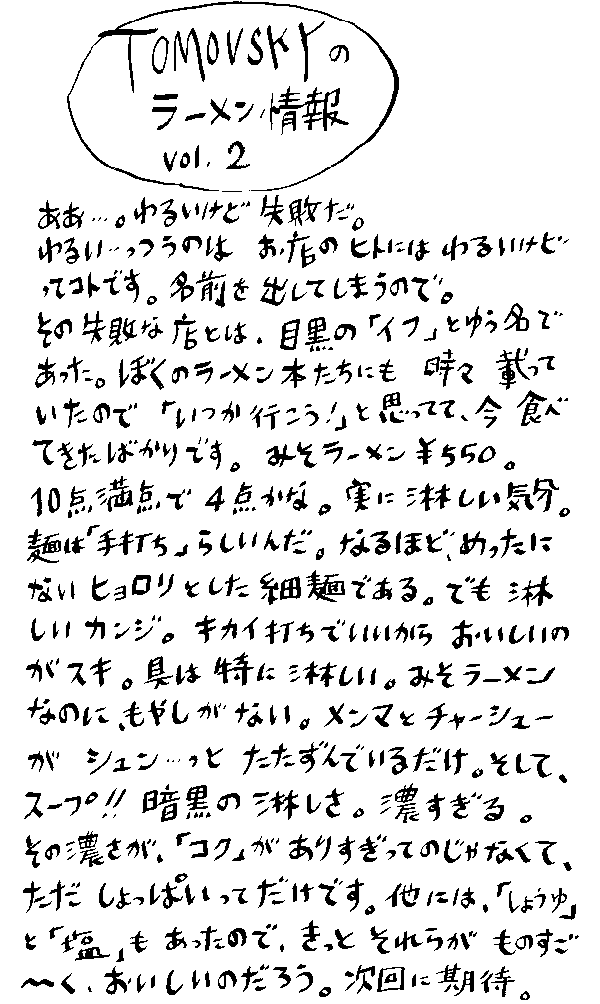 TOMOVSKYの
ラーメン情報
vol. 2
ああ…。わるいけど失敗だ。
わるい…っつうのは お店のヒトにはわるいけど
ってコトです。名前を出してしまうので。
その失敗な店とは、目黒の「イフ」とゆう名で
あった。ぼくのラーメン本たちにも 時々 載って
いたので「いつか行こう!」と思ってて、今 食べ
てきたばかりです。みそラーメン¥550。
10点満点で4点かな。実に淋しい気分。
麺は「手打ち」らしいんだ。なるほど、めったに
ないヒョロリとした細麺である。でも淋
しいカンジ。キカイ打ちでいいから おいしいの
がスキ。具は特に淋しい。みそラーメン
なのに、もやしがない。メンマとチャーシュー
が シュン…っと たたずんでいるだけ。そして、
スープ!! 暗黒の淋しさ。濃すぎる。
その濃さが、「コク」がありすぎってのじゃなくて、
ただ しょっぱいってだけです。他には、「しょうゆ」
と「塩」もあったので、きっと それらが ものすご
〜く、おいしいのだろう。次回に期待。